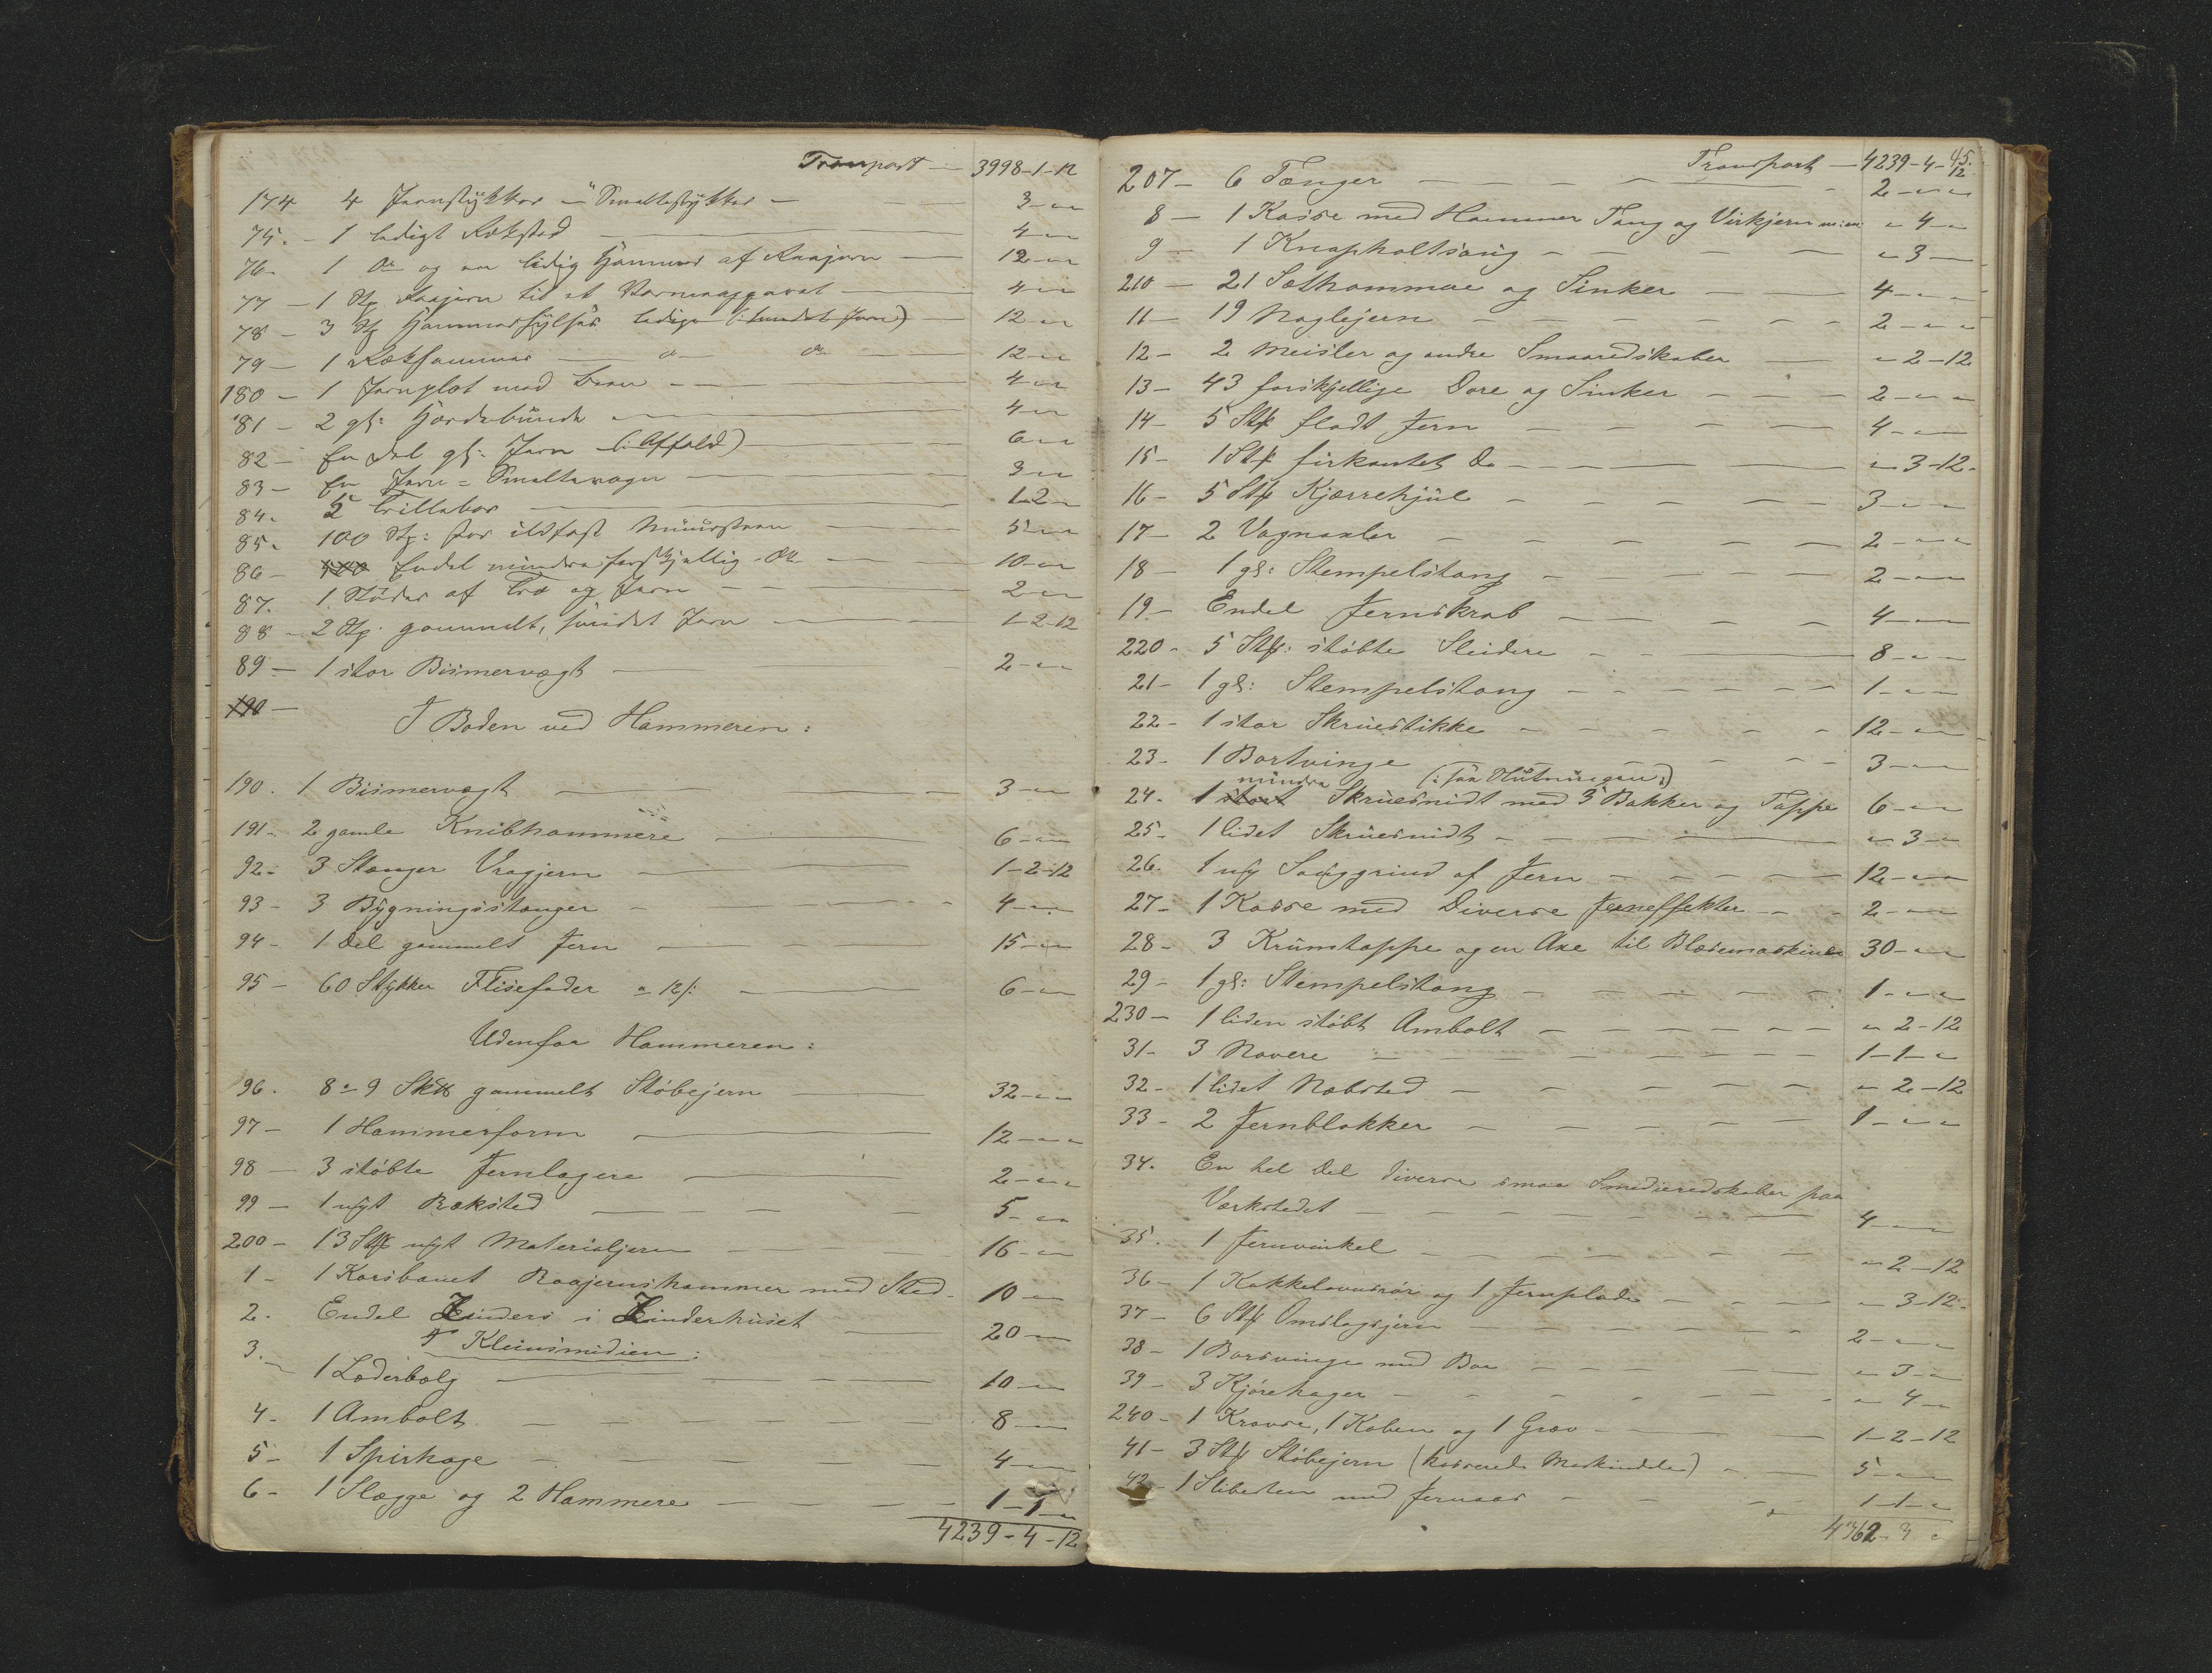 Transport — 3998-1-12
174 4 Jernstykker — Smeltestykker — 3-"-"
75. - 1 ledigt Ræksted — 4-"-"
76. 1 do og en ledig Hammer af Raajern — 12-"-"
77 - 1 Stk Raajern til et Varmeapparat — 4-"-"
78 - 3 Stk Hammerhylser ledige (: smedet Jern) — 12-"-"
79 - 1 Rækhammer — do — do — 12-"-"
180 - 1 Jernplot med — 4-"-"
81 - 2 gl: — 4-"-"
82 - En Del gl: Jern (: Affald) — 6-"-"
83 - En Jern = Smeltevogn — 3-"-"
84. 2 Trillebør — 1-2-"
85. 100 Stk: stor ildfast Muursteen — 5-"-"
86 - Endel mindre forskjellig do — 10-"-"
87. 1 Støder af Træ og Jern — 2-"-"
88 - 2 Stk. gammelt, smidet Jern — 1-2-12
89 - 1 stor Bismervægt — 2-"-"
190 -
I Boden ved Hammeren:
190. 1 Bismervægt — 3-"-"
191. 2 gamle Knibhammere — 6-"-"
92. 3 Stænger Vragjern — 1-2-12
93 - 3 Bygningsstænger — 4-"-"
94 - 1 Del gammelt Jern — 15-"-"
95 - 60 Stykker Flisefader a 12/: — 6-"-"
Udenfor Hammeren:
96. 8 a 9 Sk℔ gammelt Støbejern — 32-"-"
97 - 1 Hammerform — 12-"-"
98 - 3 støbte Jernlagere — 2-"-"
99 - 1 nyt Ræksted — 5-"-"
200 - 13 Stk nyt Materialjern — 16-"-"
1 - 1 Raajernshammer med Sted — 10-"-"
2. Endel Zinders i Zinderhuset — 20-"-"
I Kleinsmedien:
3. - 1 Læderbælg — 10-"-"
4 - 1 Ambolt — 8-"-"
5 - 1 Spirhage — 4-"-"
6 - 1 Slægge og 2 Hammere — 1-1-"
4239-4-12
45.
Transport — 4239-4-12
207 - 6 Tænger — 2-"-"
8 - 1 Kasse med Hammer Tang og Virkjern m:m: "-4-"
9 - 1 Knapholtsaug — "-3-"
210 - 21 Sæthammere og Sinker — 4-"-"
11 - 19 Naglejern — 2-"-"
12 - 2 Meisler og andre Smaaredskaber — "-2-12
13 - 43 forskjellige Dore og Sinker — 2-"-"
14 - 5 Stk fladt Jern — 4-"-"
15 - 1 Stk firkantet Do — "-3-12
16 - 5 Stk Kjærrehjul — 3-"-"
17 - 2 Vognaxler — 2-"-"
18 - 1 gl: Stempelstang — 2-"-"
19 - Endel Jernskrab — 4-"-"
220 - 5 Stk: støbte Sleidere — 8-"-"
21 - 1 gl: Stempelstang — 1-"-"
22 - 1 stor Skruestikke — 12-"-"
23 - 1 Borsvinge — 3-"-"
mindre
24 - 1 stort Skruesnidt med 3 Bakker og Tappe 6-"-"
25 - 1 lidet Skruesnidt — "-3-"
26. 1 ny Sauggrind af Jern — 12-"-"
27 - 1 Kasse med Diverse Jerneffekter — 2-"-"
28 - 3 Krumtappe og en Axe til Blæsemaskinen 30-"-"
29 - 1 gl: Stempelstang — 1-"-"
230 - 1 liden støbt Ambolt — "-2-12
31 - 3 Navere — 1-1-"
32 - 1 lidet Næbsted — "-2-12
33 - 2 Jernblokker — 1-"-"
34. En hel Del diverse smaa Smedieredskaber paa
Værkstedet — 4-"-"
35. 1 Jernvinkel — "-2-12
36 - 1 Kakkelovnsrør og 1 Jernplade — "-3-12
37 - 6 Stk Omslagsjern — 2-"-"
38 - 1 Borsvinge med Bor — "-3-"
39 - 3 Kjørehager — "-4-"
240 - 1 Kradse, 1 Koben og 1 Grev — 1-2-12
41 - 3 Stk Støbejern (kasserede Maskindele) — 5-"-"
42 - 1 Slibesten med Jernaas — 1-1-"
4362-3-"